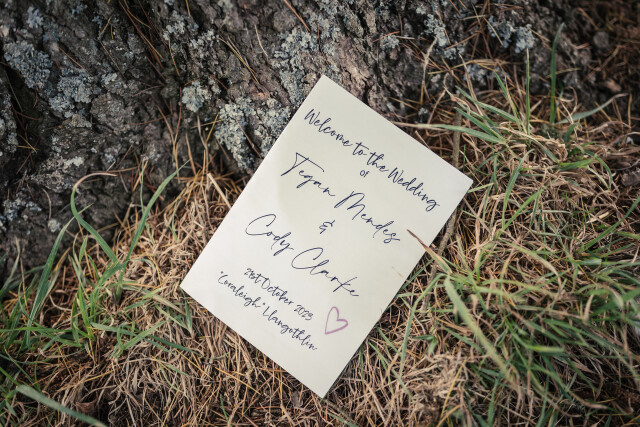 Welcome to the Wedding
of
Tegan Mendes
&
Cody Clarke
21st October 2023
"Coraleigh" Llangothlin